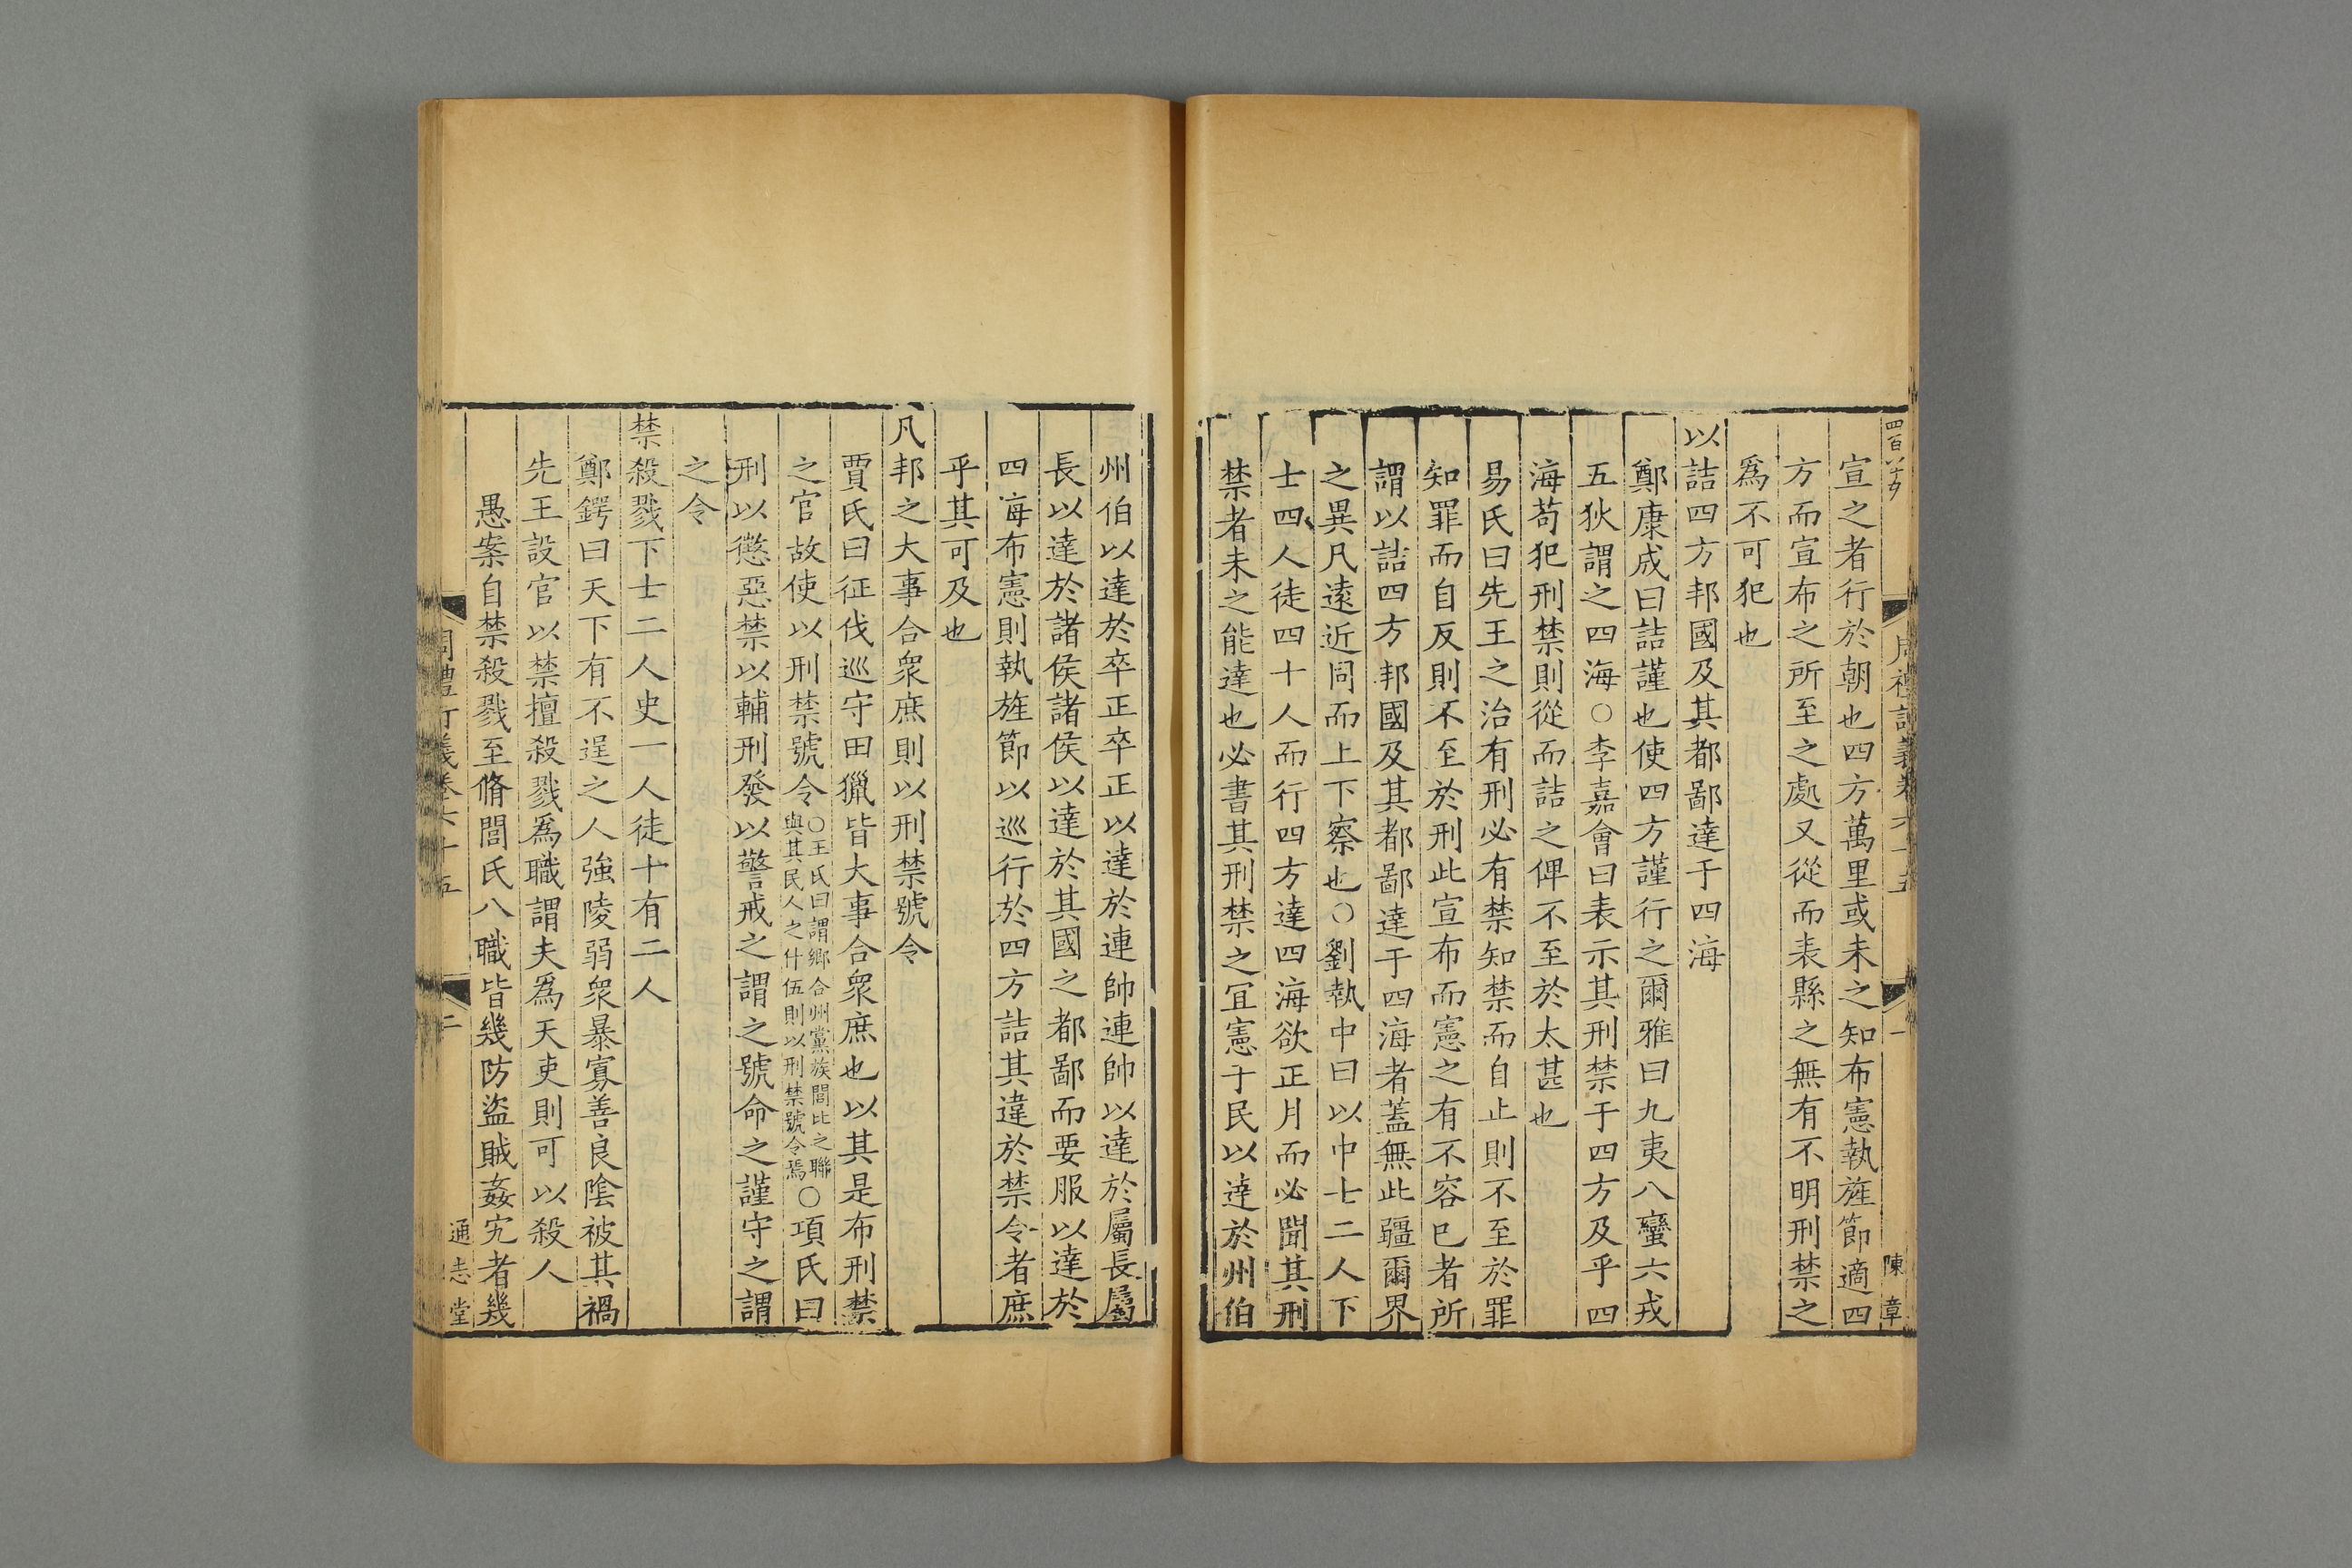 宣之者行於朝也四方萬里或未之知布憲執旌節適四
方而宣布之所至之處又從而表縣之無有不明刑禁之
爲不可犯也
以詰四方邦國及其都鄙達于四海
鄭康成曰詰謹也使四方謹行之爾雅曰九夷八蠻六戎
五狄謂之四海○李嘉會曰表示其刑禁于四方及乎四
海苟犯刑禁則從而詰之俾不至於太甚也
易氏曰先王之治有刑必有禁知禁而自止則不至於罪
知罪而自反則不至於刑此宣布而憲之有不容已者所
謂以詰四方邦國及其都鄙達于四海者蓋無此疆爾界
之異凡遠近同而上下察也○劉執中曰以中士二人下
士四人徒四十人而行四方達四海欲正月而必聞其刑
禁者未之能達也必書其刑禁之宜憲于民以達於州伯
州伯以達於卒正卒正以達於連帥連帥以達於屬長屬
長以達於諸侯諸侯以達於其國之都鄙而要服以達於
四海布憲則執旌節以巡行於四方詰其違於禁令者庶
乎其可及也
凡邦之大事合衆庶則以刑禁號令
賈氏曰征伐巡守田獵皆大事合衆庶也以其是布刑禁
之官故使以刑禁號令○王氏曰謂鄉合州黨族閭比之聯與其民人之什伍則以刑禁號令焉○項氏曰
刑以懲惡禁以輔刑發以警戒之謂之號命之謹守之謂
之令
禁殺戮下士二人史一人徒十有二人
鄭鍔曰天下有不逞之人強陵弱衆暴寡善良陰被其禍
先王設官以禁擅殺戮爲職謂夫爲天吏則可以殺人
愚案自禁殺戮至脩閭氏八職皆幾防盜賊姦宄者幾
周禮訂義卷六十五
二
通志堂
周禮訂義卷六十五
一
陳章